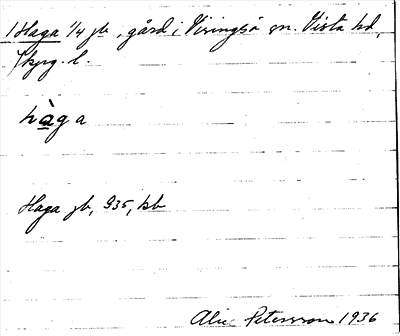 1 Haga 1/4 jb, gård i Visingsö sn. Vista hd,
Jkpg. l.
hàga
Haga jb, 935, kb
Alic Petersson 1936